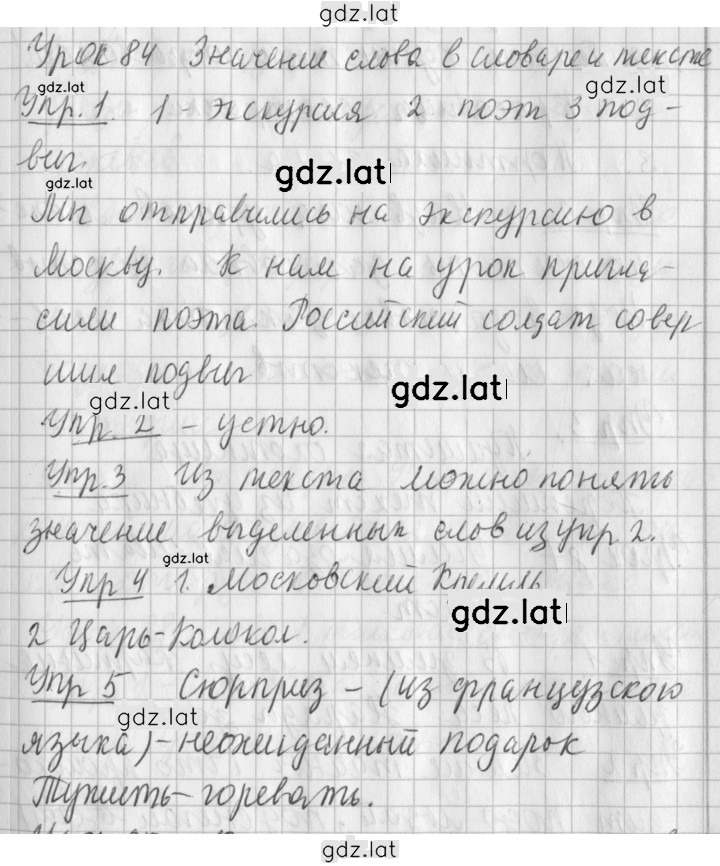 gdz.lat
Урок 84 Значение слова в словаре и тексте
gdz.lat
gdz.lat
Упр.1. 1 - экскурсия 2 поэт 3 под-
виг.
gdz.lat
gdz.lat
Мы отправились на экскурсию в
Москву. К нам на урок пригла-
сили поэта Российский солдат совер
шил подвиг
gdz.lat
gdz.lat
Упр. 2 - устно.
Упр.3 Из текста можно понять
значение выделенных слов из упр 2.
gdz.lat
Упр 4 1. Московский Кремль
gdz.lat
2 Царь-Колокол.
Упр 5 Сюрприз - (из французского
gdz.lat
языка) - неожиданный подарок
Тужить - горевать.
gdz.lat